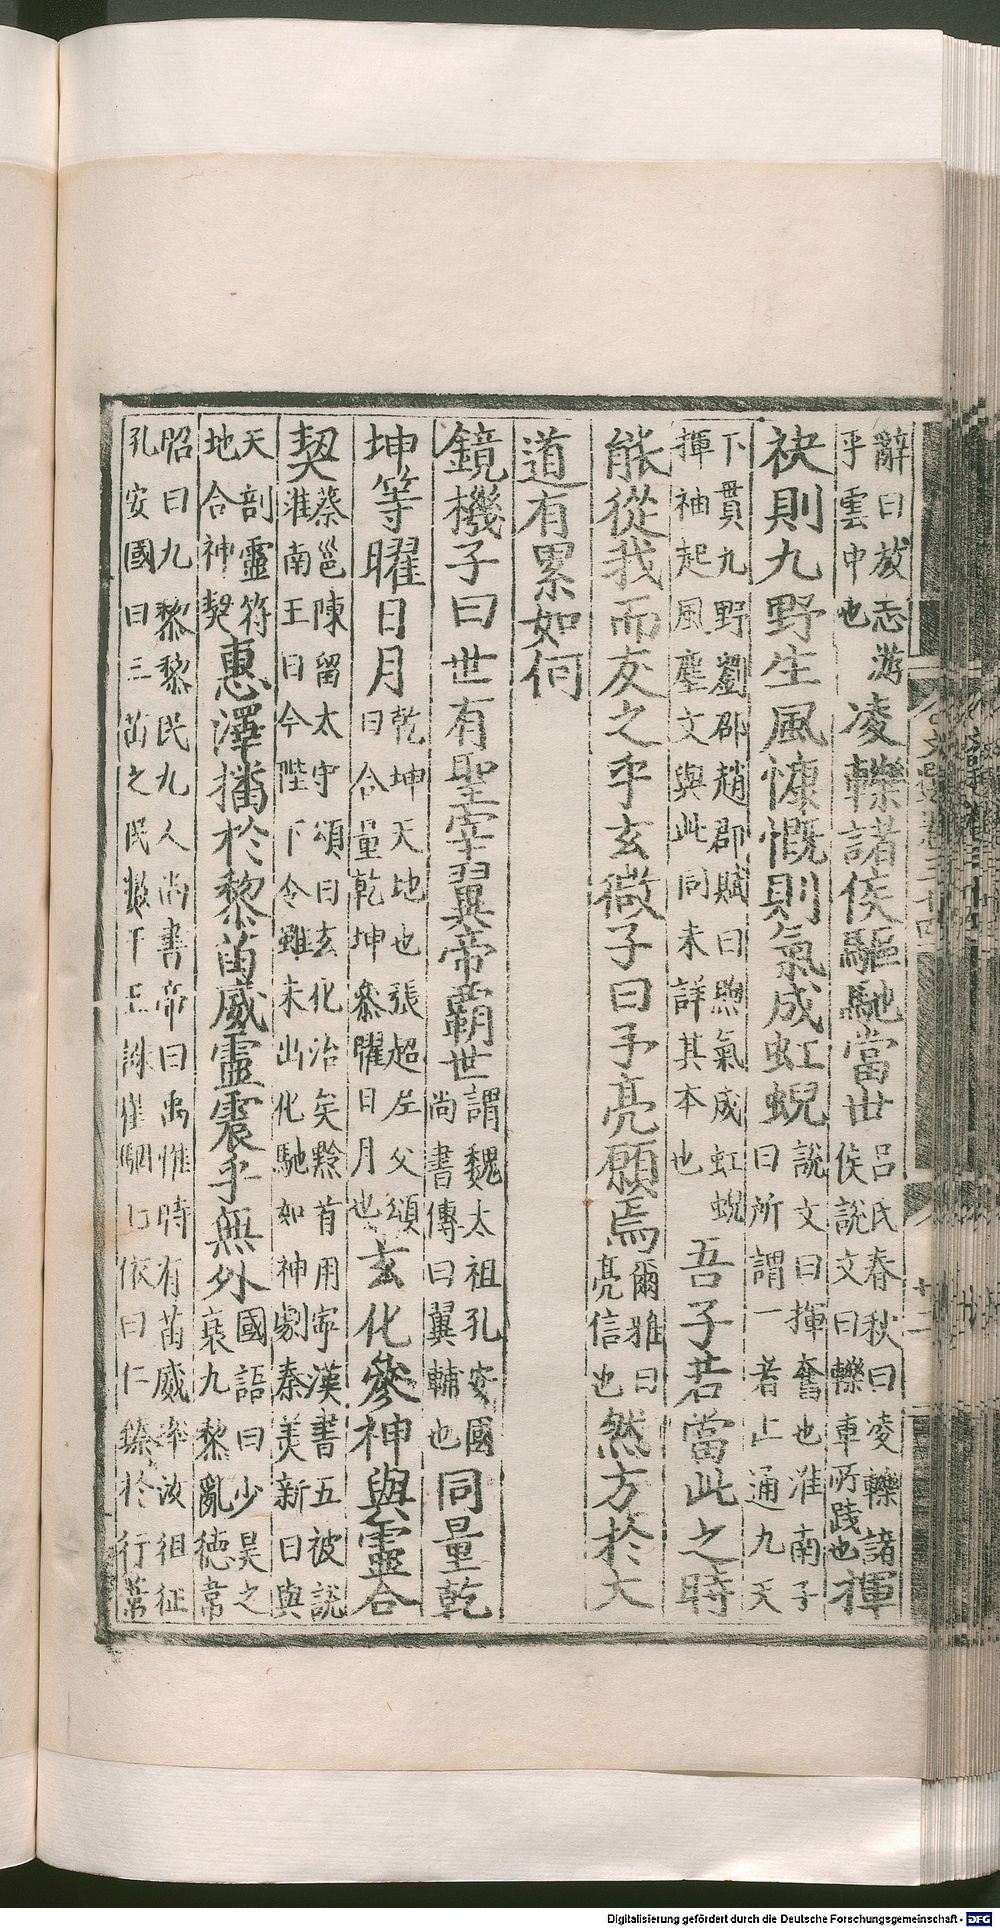 辭曰放志游乎雲中也凌轢諸侯驅馳當世呂氏春秋曰凌轢諸侯說文曰轢車所踐也揮
袂則九野生風慷慨則氣成虹蜺說文曰揮奮也淮南子曰所謂一者上通九天
下貫九野劉邵趙郡賦曰煦氣成虹蜺揮袖起風塵文與此同未詳其本也吾子若當此之時
能從我而友之乎玄微子曰予亮願焉爾雅曰亮信也然方於大
道有累如何
鏡機子曰世有聖宰翼帝霸世謂魏太祖孔安國尚書傳曰翼輔也同量乾
坤等曜日月乾坤天地也張超尼父頌曰合量乾坤參曜日月也玄化參神與靈合
契蔡邕陳留太守頌曰玄化洽矣黔首用寧漢書五被說淮南王曰今陛下令雖未出化馳如神劇秦美新曰與
天剖靈符地合神契惠澤播於黎苗威靈震乎無外國語曰少昊之衰九黎亂德韋
昭曰九黎黎民九人尚書帝曰禹惟時有苗威率汝徂征孔安國曰三苗之民數干王誅崔駰七依曰仁臻於行葦
Digitalisierung gefördert durch die Deutsche Forschungsgemeinschaft - DFG